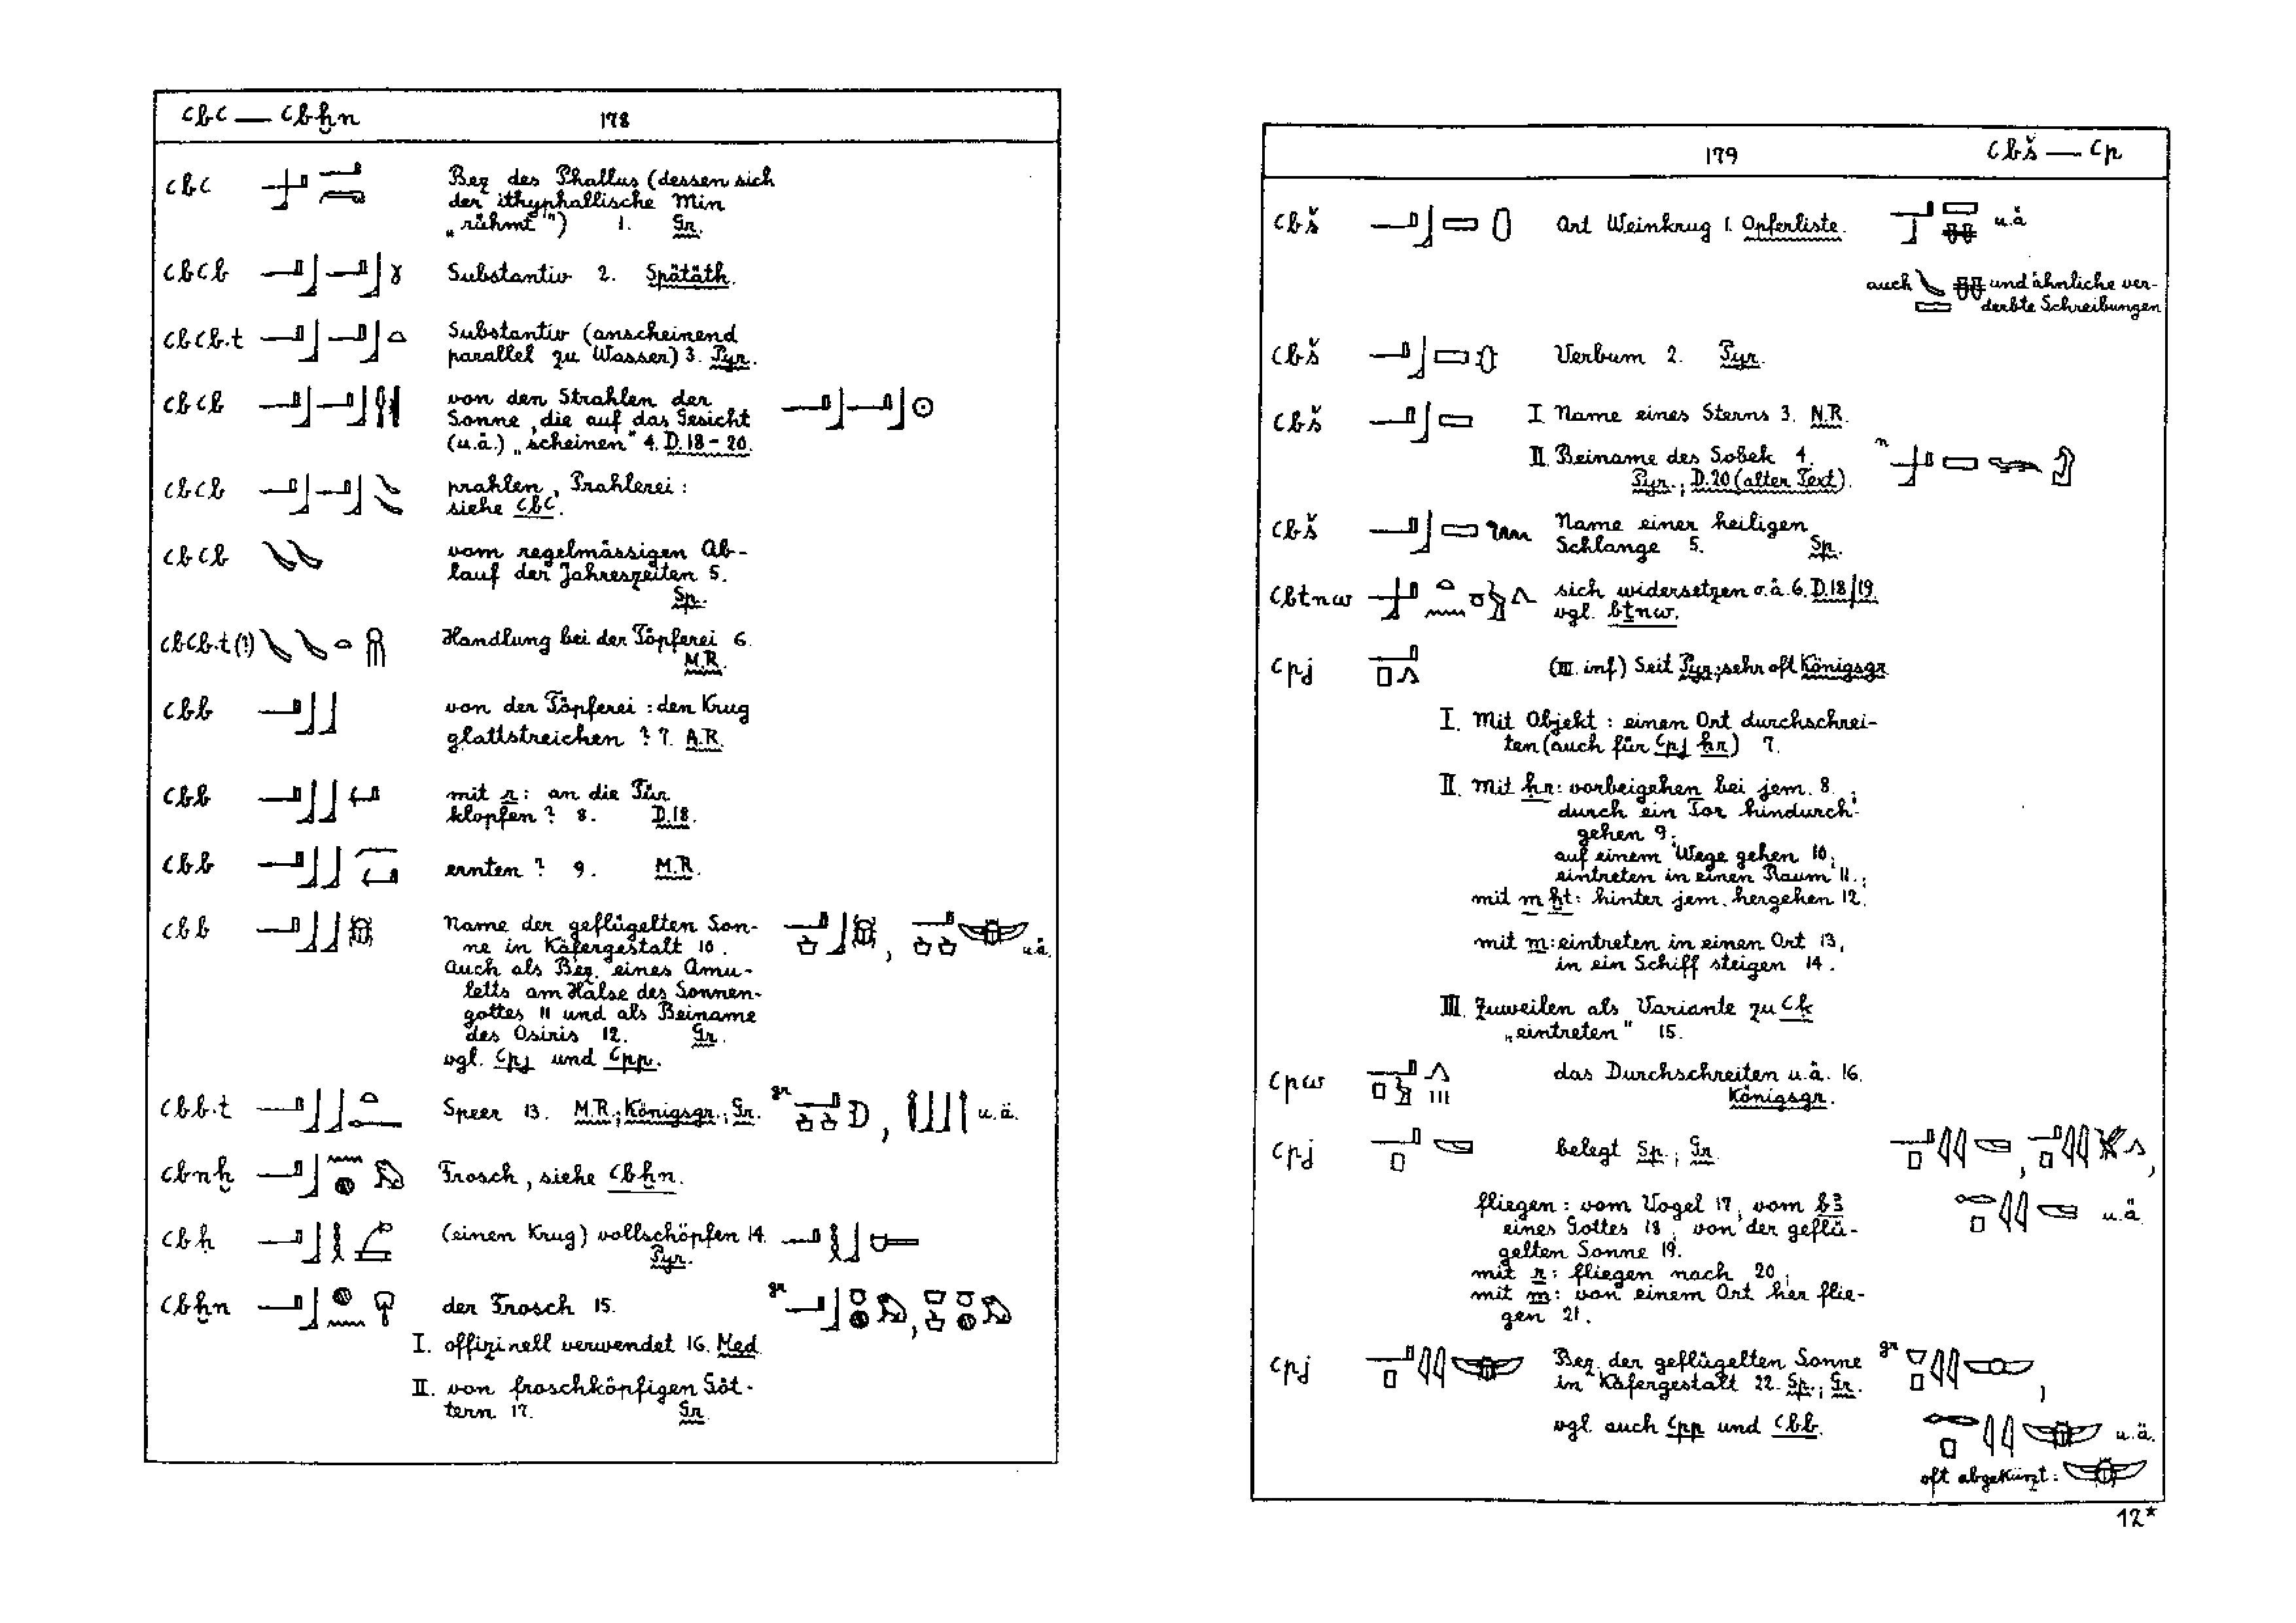 ꜥbꜥ — ꜥbḫn 178
ꜥbꜥ Bez des Phallus (dessen sich
der ithyphallische Min
„rühmt“) 1. Gr.
ꜥbꜥb Substantiv 2. Spätäth.
ꜥbꜥb.t Substantiv (anscheinend
parallel zu Wasser) 3. Pyr.
ꜥbꜥb von den Strahlen der
Sonne, die auf das Gesicht
(u.ä.) „scheinen“ 4. D.18-20.
ꜥbꜥb prahlen, Prahlerei:
siehe ꜥbꜥ.
ꜥbꜥb vom regelmässigen Ab-
lauf der Jahreszeiten 5.
Sp.
ꜥbꜥb.t (?) Handlung bei der Töpferei 6.
M.R.
ꜥbb von der Töpferei: den Krug
glattstreichen? 7. A.R.
ꜥbb mit r: an die Tür
klopfen? 8. D.18.
ꜥbb ernten? 9. M.R.
ꜥbb Name der geflügelten Son-
ne in Käfergestalt 10. u.ä.
Auch als Bez. eines Amu-
letts am Halse des Sonnen-
gottes 11 und als Beiname
des Osiris 12. Gr.
vgl. ꜥpj und ꜥpp.
ꜥbb.t Speer 13. M.R.; Königsgr.; Gr. gr u.ä.
ꜥbnḫ Frosch, siehe ꜥbḫn.
ꜥbḥ (einen Krug) vollschöpfen 14.
Pyr.
ꜥbḫn der Frosch 15. gr
I. offizinell verwendet 16. Med.
II. von froschköpfigen Göt-
tern 17. Gr.
179 ꜥbš — ꜥp
ꜥbš Art Weinkrug 1. Opferliste. u.ä
auch und ähnliche ver-
derbte Schreibungen
ꜥbš Verbum 2. Pyr.
ꜥbš I. Name eines Sterns 3. N.R.
II. Beiname des Sobek 4. n
Pyr.; D.20 (alter Text).
ꜥbš Name einer heiligen
Schlange 5. Sp.
ꜥbtnw sich widersetzen o.ä. 6. D.18/19.
vgl. bṯnw.
ꜥpj (III. inf) Seit Pyr.; sehr oft Königsgr.
I. Mit Objekt: einen Ort durchschrei-
ten (auch für ꜥpj ḥr) 7.
II. Mit ḥr: vorbeigehen bei jem. 8.;
durch ein Tor hindurch-
gehen 9;
auf einem Wege gehen 10;
eintreten in einen Raum 11.;
mit m ḫt: hinter jem. hergehen 12.
mit m: eintreten in einen Ort 13,
in ein Schiff steigen 14.
III. Zuweilen als Variante zu ꜥḳ
„eintreten“ 15.
ꜥpw das Durchschreiten u.ä. 16.
Königsgr.
ꜥpj belegt Sp.; Gr.
fliegen: vom Vogel 17, vom bꜣ
eines Gottes 18, von der geflü- u.ä.
gelten Sonne 19.
mit r: fliegen nach 20;
mit m: von einem Ort her flie-
gen 21.
ꜥpj Bez. der geflügelten Sonne gr
in Käfergestalt 22. Sp.; Gr.
vgl. auch ꜥpp und ꜥbb. u.ä.
oft abgekürzt:
12*